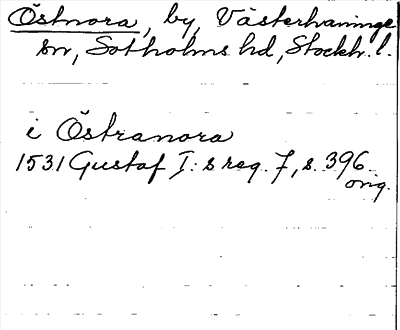 Östnora, by, Västerhaninge
sn, Sotholms hd, Stockh. l.
i Östranora
1531 Gustaf I:s reg. 7, s. 396
orig.